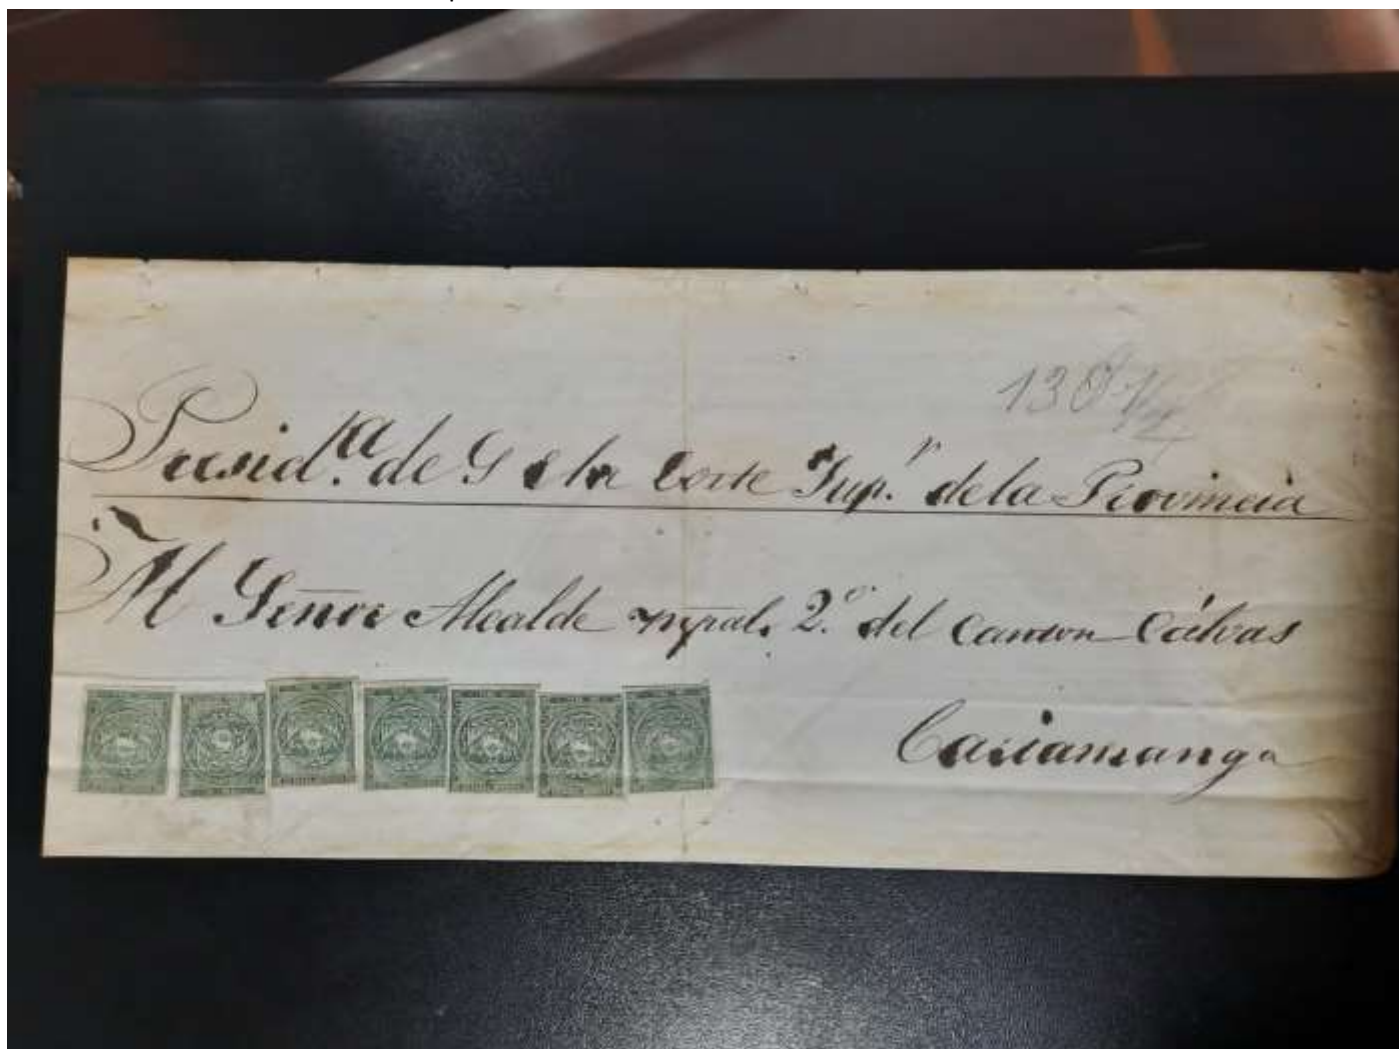 130
Presid.ta de la Corte Sup.r de la Provincia
Al Señor Alcalde mpal. 2.º del Canton Cálvas
Cariamanga